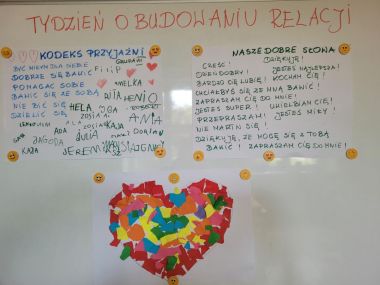 TYDZIEŃ O BUDOWANIU RELACJI
KODEKS PRZYJAŹNI
BYĆ MIŁYM DLA SIEBIE
DOBRZE SIĘ BAWIĆ
POMAGAĆ SOBIE
BAWIĆ SIĘ ZE SOBĄ
NIE BIĆ SIĘ
DZIELIĆ SIĘ
FiLiP
AMELKA
HENIO
ROBERT
HELA
IGA
ZOSIA
ALA
ZOSIA
KAJA
ANIA
ADA
JULIA
JAGODA
KAZA
JEREMI
NASZE DOBRE SŁOWA
CZEŚĆ!
DZIĘKUJĘ!
DZIEŃ DOBRY!
JESTEŚ NAJLEPSZA!
BARDZO CIĘ LUBIĘ!
KOCHAM CIĘ!
CHCIAŁBYŚ SIĘ ZE MNĄ BAWIĆ!
ZAPRASZAM CIĘ DO MNIE!
JESTEŚ SUPER!
UWIELBIAM CIĘ!
PRZEPRASZAM!
JESTEŚ MIŁY!
NIE MARTW SIĘ!
DZIĘKUJĘ, ŻE MOGĘ SIĘ Z TOBĄ
BAWIĆ! ZAPRASZAM CIĘ DO MNIE!